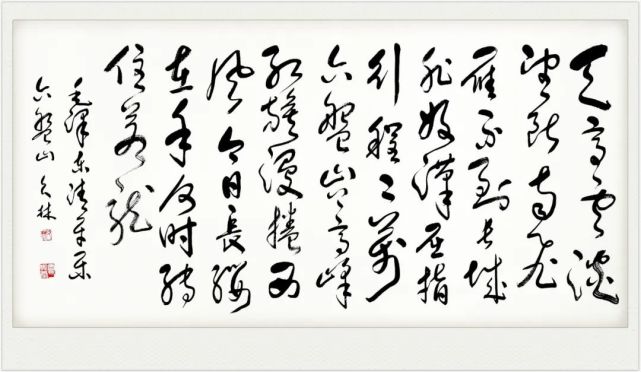 天高雲淡
望斷南飛
雁不到长城
非好漢屈指
行程二萬
六盤山上高峰
红旗漫捲西
风今日長缨
在手何时缚
住苍龙
毛澤东清平乐
六盤山久林